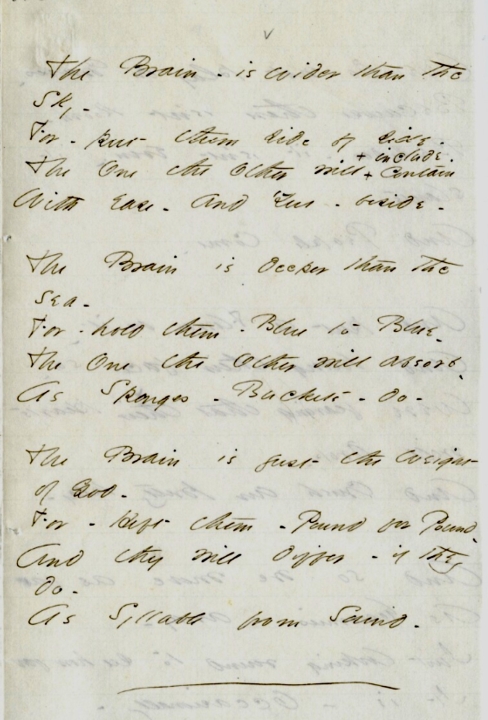 The Brain - is wider than the
Sky -
For - put them side by side -
+ include -
The One the other will + Contain
With Ease - And You - beside -
The Brain is deeper than the
Sea -
For - hold them - Blue to Blue -
The One the Other will absorb -
As Sponges - Buckets - do -
The Brain is just the weight
of God -
For - Heft them - Pound for Pound -
And they will differ - if they
do -
As Syllable from Sound -